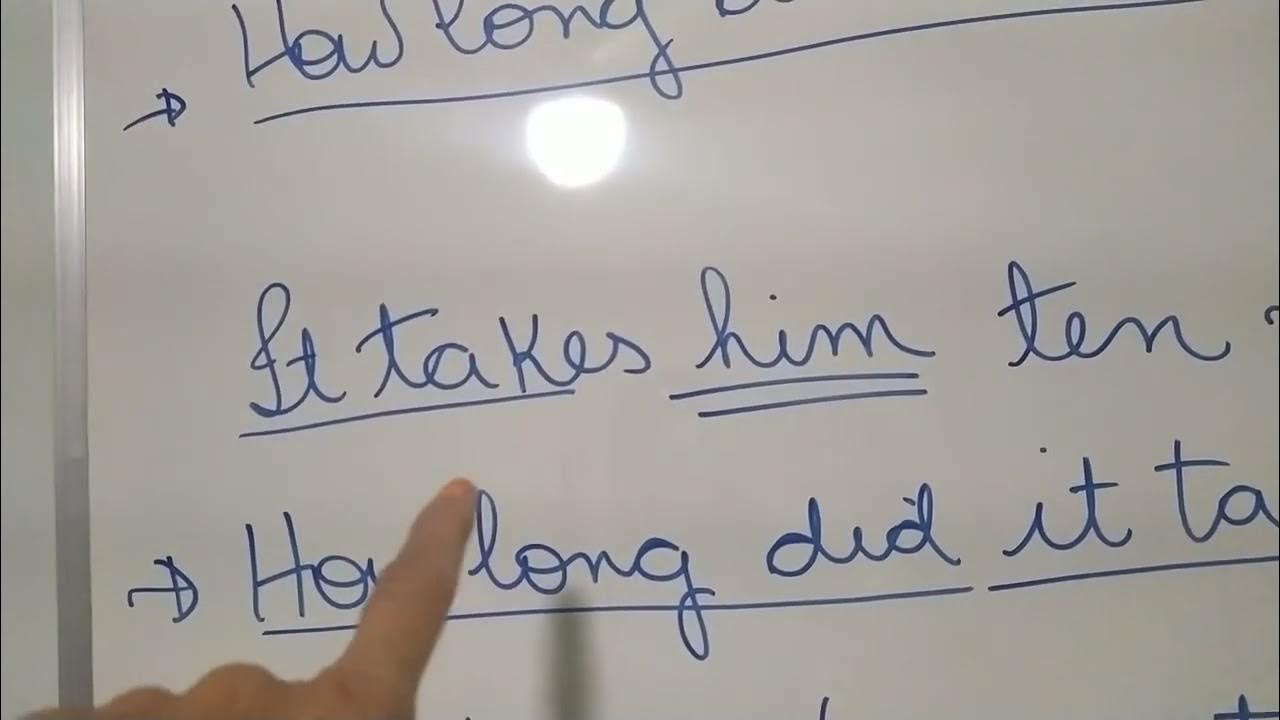 How long
It takes him ten
How long did it ta